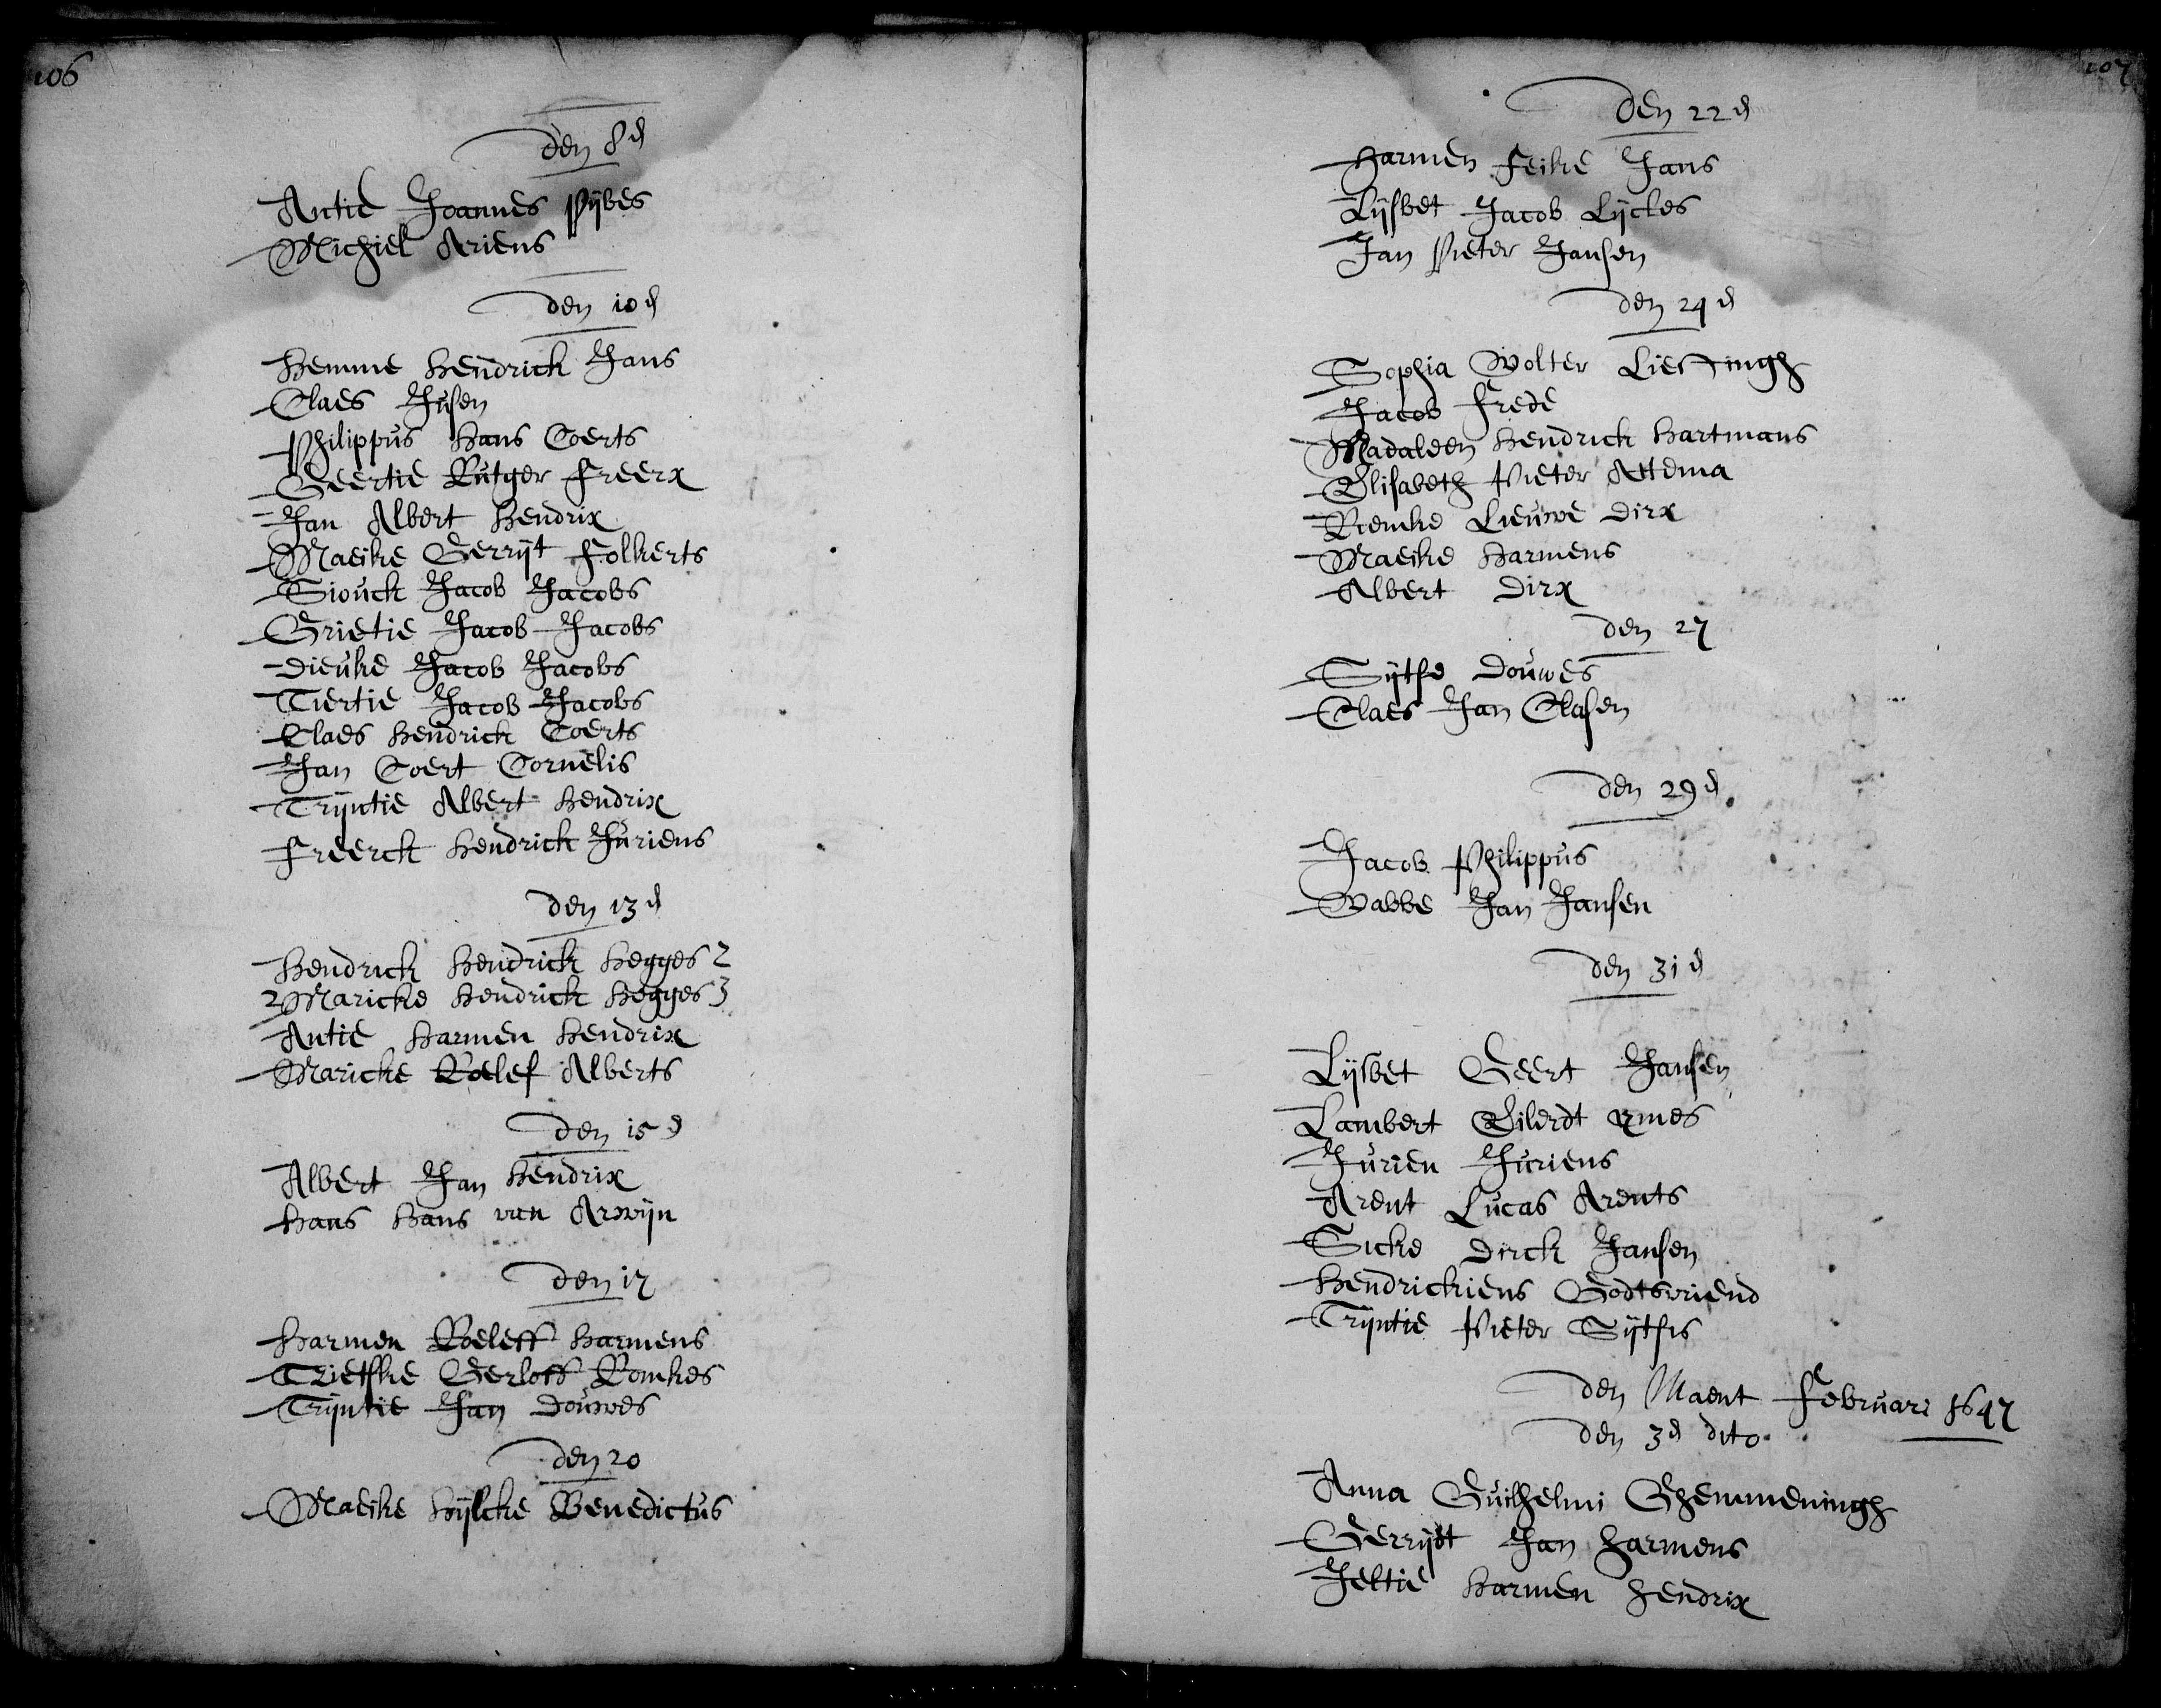 106
den 8den
Antie Joannes Pijbes
Michiel Ariens
den 10den
Hemme Hendrick Jans
Claes Jusen
Philippus Hans Coerts
Geertie Rutger Freerx
Jan Albert Hendrix
Maeike Gerrijt Folkerts
Siouck Jacob Jacobs
Grietie Jacob Jacobs
Dieuke Jacob Jacobs
Tiertie Jacob Jacobs
Claes Hendrick Coerts
Jan Coert Cornelis
Trijntie Albert Hendrix
Freerck Hendrick Juriens
den 13den
Hendrick Hendrick Hegges 2
2 Maricke Hendrick Hegges 3
Antie Harmen Hendrix
Maricke Roelef Alberts
den 15den
Albert Jan Hendrix
Hans Hans van Arwijn
den 17
Harmen Roeleff Harmens
Trietske Gerloff Romkes
Trijntie Jan Douwes
den 20
Maeike Hijlcke Benedictus
107
den 22den
Harmen Feike Jans
Lijsbet Jacob Lyckles
Jan Pieter Jansen
den 24den
Sophia Wolter Liestingh
Jacob Frede
Madaleen Hendrick Hartmans
Elisabeth Pieter Attema
Riemke Lieuwe Dirx
Maeike Harmens
Albert Dirx
den 27
Sijtse Douwes
Claes Jan Clasen
den 29den
Jacob Philippus
Wabbe Jan Jansen
den 31den
Lijsbet Geert Jansen
Lambert Eilerdt
Jurien Juriens
Arent Lucas Arents
Sicke Dirck Jansen
Hendrickiens Godtsvriend
Trijntie Pieter Sijtses
den Maent Februari 1647
den 3den dito
Anna Guilhelmi Ghemmeningh
Gerrijdt Jan Harmens
Jeltie Harmen Hendrix